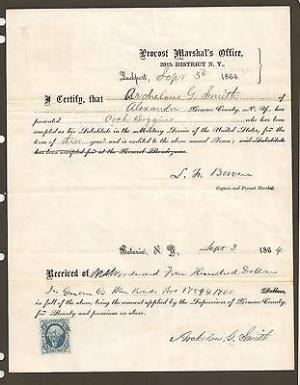 Provost Marshal's Office,
29th DISTRICT N. Y.,
Lockport, Sept 3d 1864
I Certify, that Archelaus G. Smith
of Alexander Genesee County, N. Y., has
presented who has been
accepted as his Substitute in the military Service of the United States, for the
term of three years, and is credited to the above named Town; said Substitute
has been accepted for at the General Rendezvous.
Captain and Provost Marshal.
Batavia, N. Y. Sept 3 1864
Received of Woodward Four Hundred Dollars
In Genesee Co War Bonds Nos 1759 & 1760 Dollars,
in full of the above, being the amount applied by the Supervisors of Genesee County,
for Bounty and premium as above.
Archelaus G. Smith